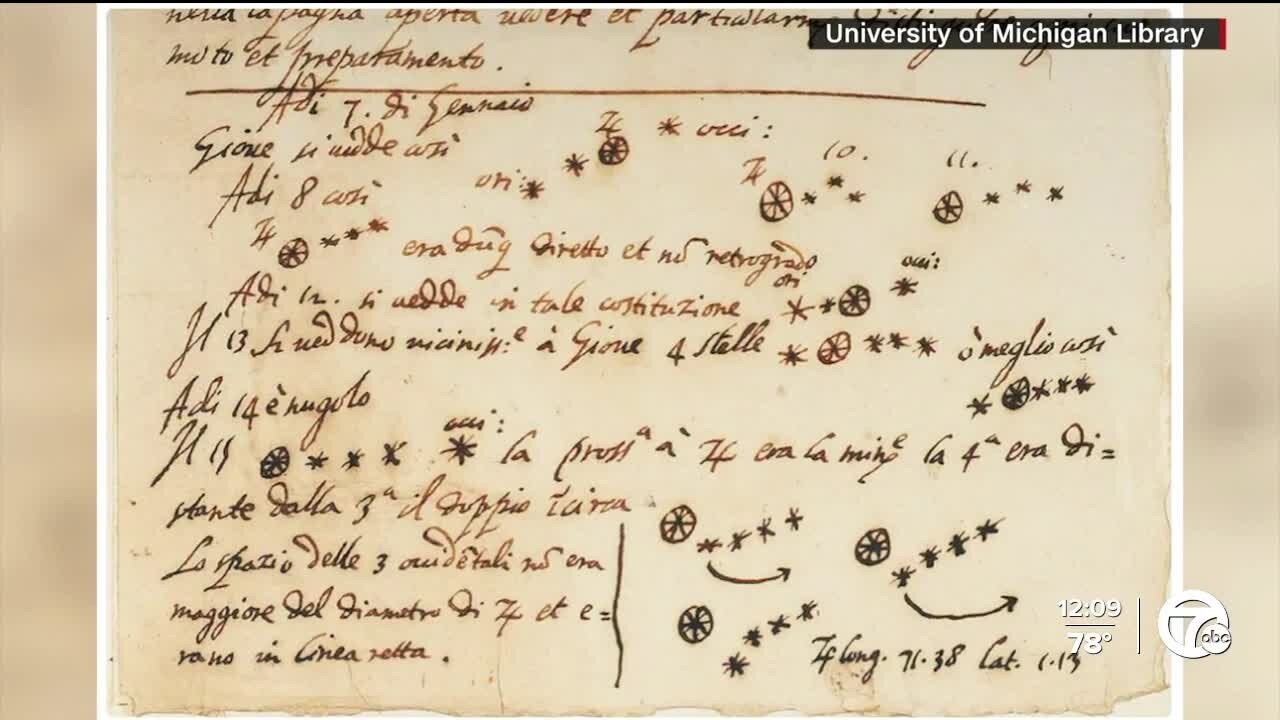 University of Michigan Library
nella capagna aperta vedere et particolarm
moto et preparamento.
Adi 7. di Gennaio
Gioue si uedde così
♃ occi:
Adi 8 così
ori:
♃ 10. 11.
♃
era dūq diretto et nō retrogrado
Adi 12. si uedde in tale costituzione
ori occi:
Il 13 si ueddono uiciniss:e à Gioue 4 stelle
ò meglio così
Adi 14 è nugolo
Il 15
occi:
la prossa à ♃ era la mine la 4a era di=
stante dalla 3a il doppio ī circa
Lo spazio delle 3 occidētali nō era
maggiore del diametro di ♃ et e=
rano in linea retta.
♃ long. 71.38 lat. 1.13
12:09
78°
7 abc